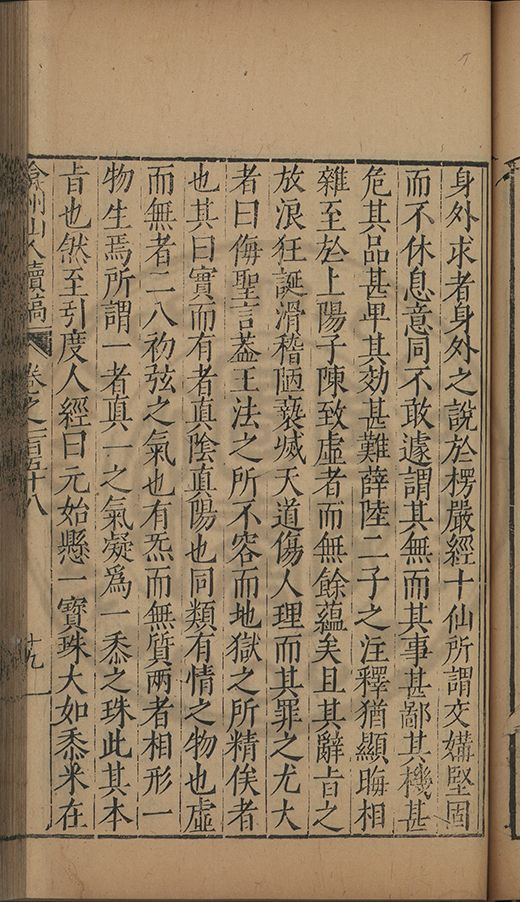 身外求者身外之說於楞嚴經十仙所謂交媾堅固
而不休息意同不敢遽謂其無而其事甚鄙其機甚
危其品甚卑其効甚難薛陸二子之注釋猶顯晦相
雜至於上陽子陳致虛者而無餘蘊矣且其辭旨之
放浪狂誕滑稽陋褻滅天道傷人理而其罪之尤大
者曰侮聖言葢王法之所不容而地獄之所精俟者
也其曰實而有者真陰真陽也同類有情之物也虛
而無者二八初弦之氣也有炁而無質兩者相形一
物生焉所謂一者真一之氣凝爲一黍之珠此其本
旨也然至引度人經曰元始懸一寶珠大如黍米在
弇州山人續稿 卷之一百五十八 十九